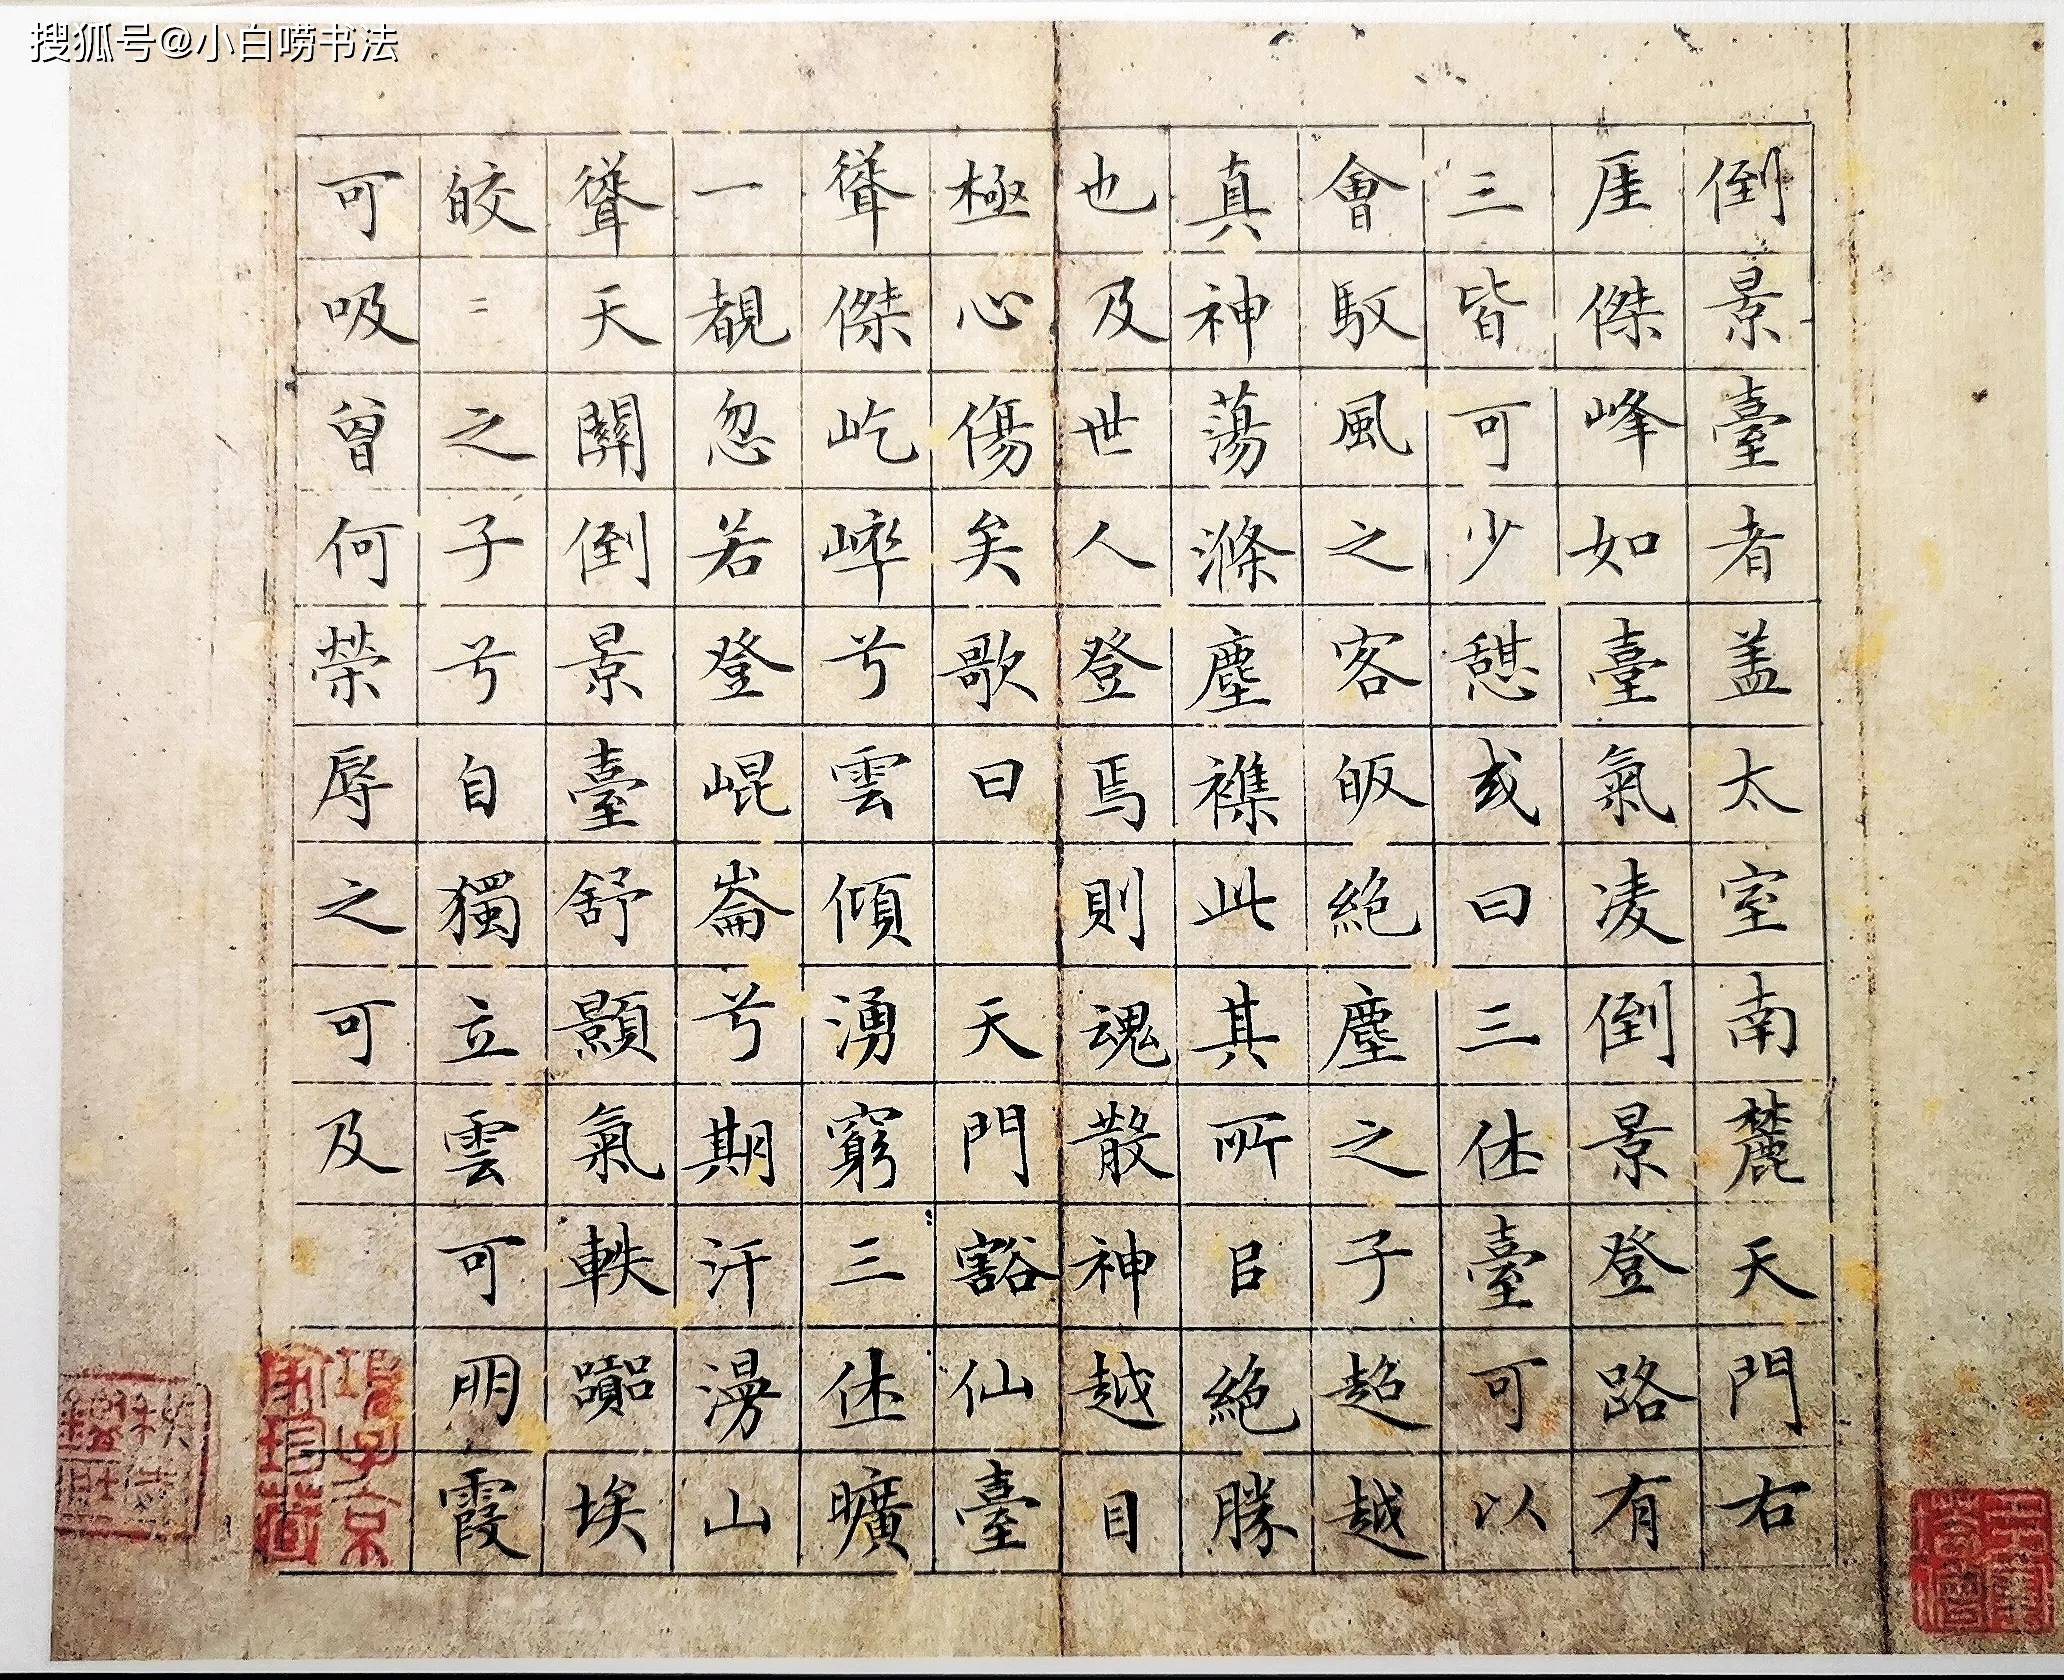 搜狐号@小白唠书法
倒景臺者盖太室南麓天門右
厓傑峰如臺氣凌倒景登路有
三皆可少憩或曰三休臺可以
會馭風之客皈絶塵之子超越
真神蕩滌塵襍此其所㠯絶勝
也及世人登焉則魂散神越目
極心傷矣歌曰 天門豁仙臺
聳傑屹崒兮雲傾湧窮三休曠
一覩忽若登崐崙兮期汗漫山
聳天關倒景臺舒顥氣軼嚻埃
皎=之子兮自獨立雲可朋霞
可吸曾何榮辱之可及
項子京家珍藏